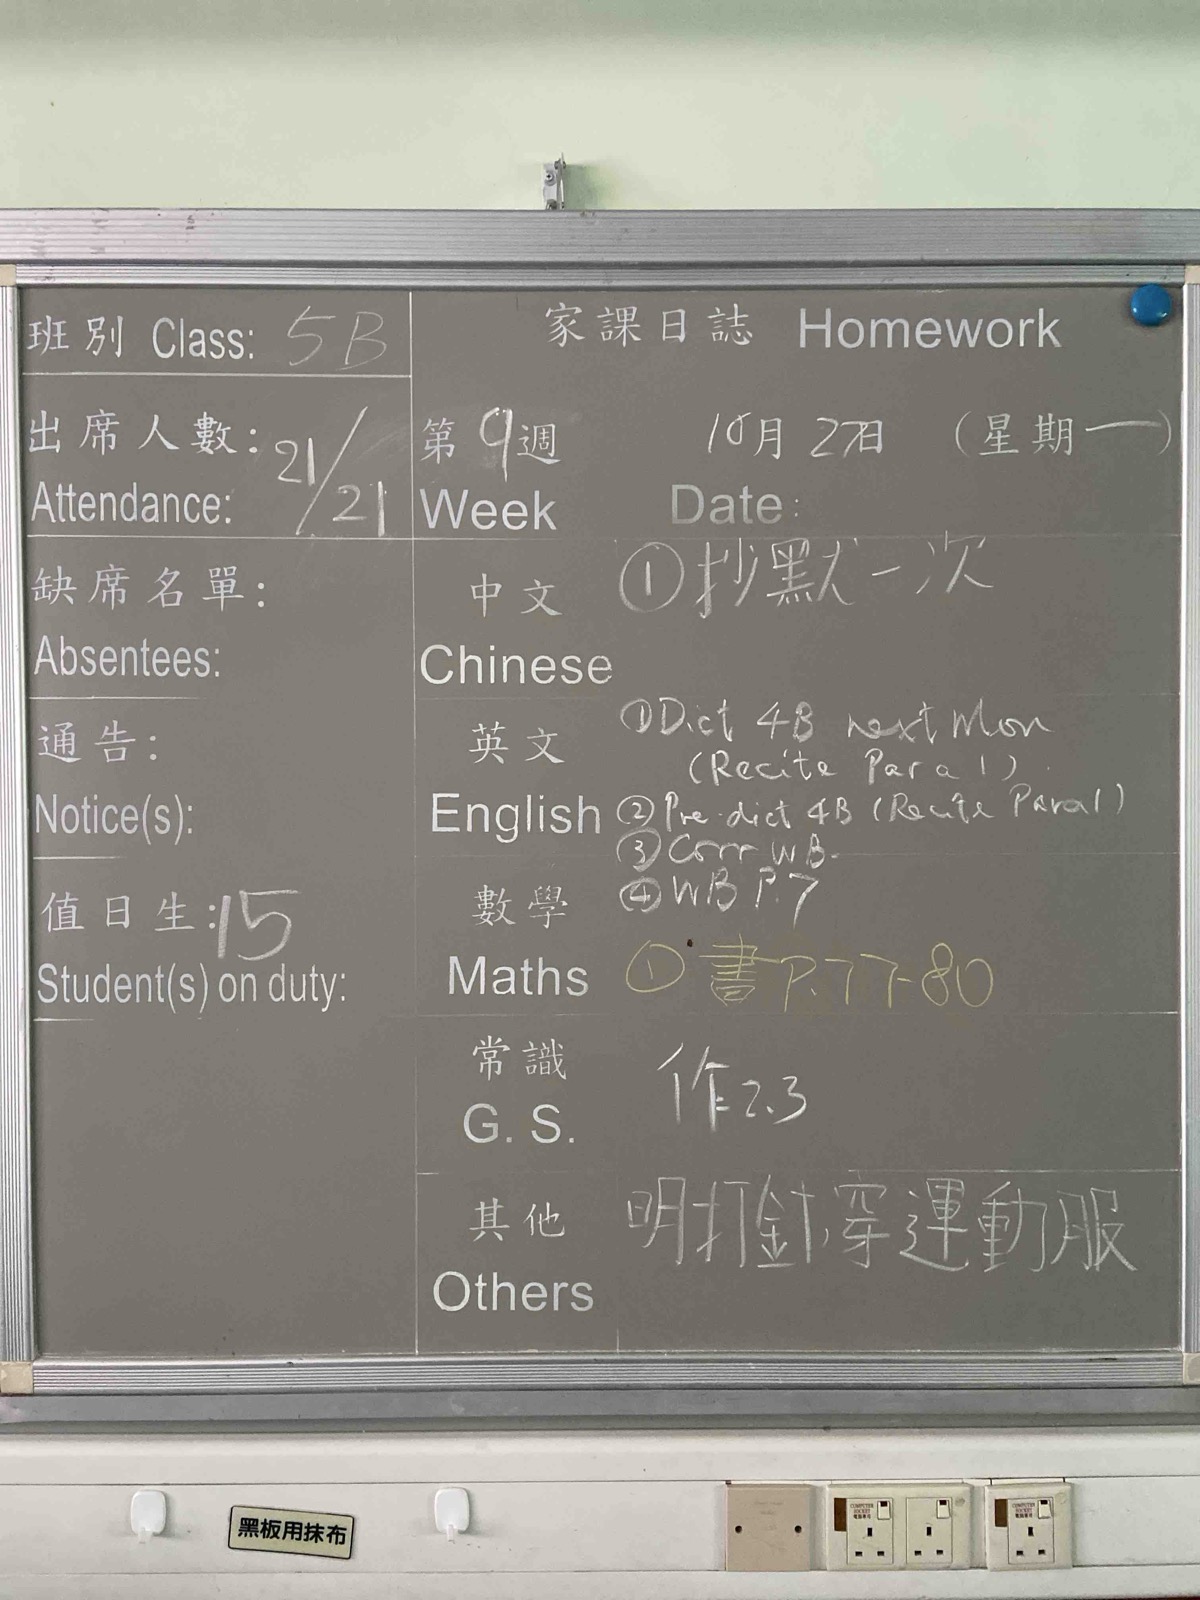 班別 Class: 5B
出席人數: 21/21
Attendance:
缺席名單:
Absentees:
通告:
Notice(s):
值日生: 15
Student(s) on duty:
家課日誌 Homework
第9週 10月27日 (星期一)
Week Date:
中文 ①抄默一次
Chinese
英文 ①Dict 4B next Mon
(Recite Para 1)
English ②Pre-dict 4B (Recite Para 1)
③Corr WB.
④WB P.7
數學
Maths ①書P.77-80
常識 作2.3
G. S.
其他 明打針,穿運動服
Others
黑板用抹布
COMPUTER
SOCKET
電腦專用
COMPUTER
SOCKET
電腦專用